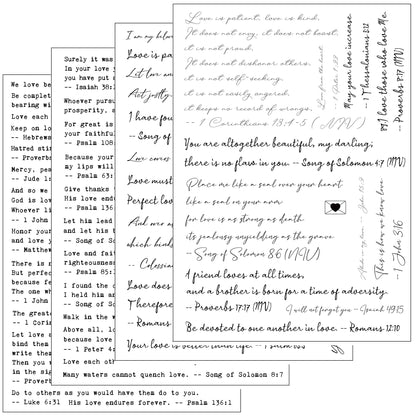 We love bec
Be complet
bearing wi
Love each
Keep on lo
-- Hebrews
Hatred stir
-- Proverbs
Mercy, pea
-- Jude 1:
And so we
God is love
Whoever li
-- 1 John
Honor your
and love y
-- Matthew
There is n
But perfec
because fe
The one wh
-- 1 John
The greate
-- 1 Corin
Let love a
bind them
write them
Then you w
in the sig
-- Proverb
Do to others as you would have them do to you.
-- Luke 6:31 His love endures forever. -- Psalm 136:1
Surely it wa
In your love y
you have put a
-- Isaiah 38:1
Whoever pursu
prosperity, an
For great is
your faithful
-- Psalm 108:
Because your
my lips will
-- Psalm 63:
Give thanks
His love endu
-- Psalm 136
Let him lead
and let his b
-- Song of S
Love and fai
righteousnes
-- Psalm 85:
I found the o
I held him an
-- Song of S
Walk in the w
Above all, lo
because love
-- 1 Peter 4:
Love each oth
Many waters cannot quench love. -- Song of Solomon 8:7
I am my belov
Love is pa
Let love and
Act justly
I have fou
-- Song of
Love covers
Love must
Perfect lov
And over a
which binds
-- Colossia
Love does
Therefore
-- Romans
Your love is better than life.
Love is patient, love is kind.
It does not envy, it does not boast,
it is not proud.
It does not dishonor others,
it is not self-seeking,
it is not easily angered,
it keeps no record of wrongs.
-- 1 Corinthians 13:4-5 (NIV)
May your love increase
-- 1 Thessalonians 3:12
I love those who love Me.
-- Proverbs 8:17 (NIV)
You are altogether beautiful, my darling;
there is no flaw in you. -- Song of Solomon 4:7 (NIV)
Place me like a seal over your heart
like a seal on your arm
for love is as strong as death
its jealousy unyielding as the grave
-- Song of Solomon 8:6 (NIV)
This is how we know love
-- 1 John 3:16
A friend loves at all times,
and a brother is born for a time of adversity.
-- Proverbs 17:17 (NIV)
I will not forget you -- Isaiah 49:15
Be devoted to one another in love. -- Romans 12:10